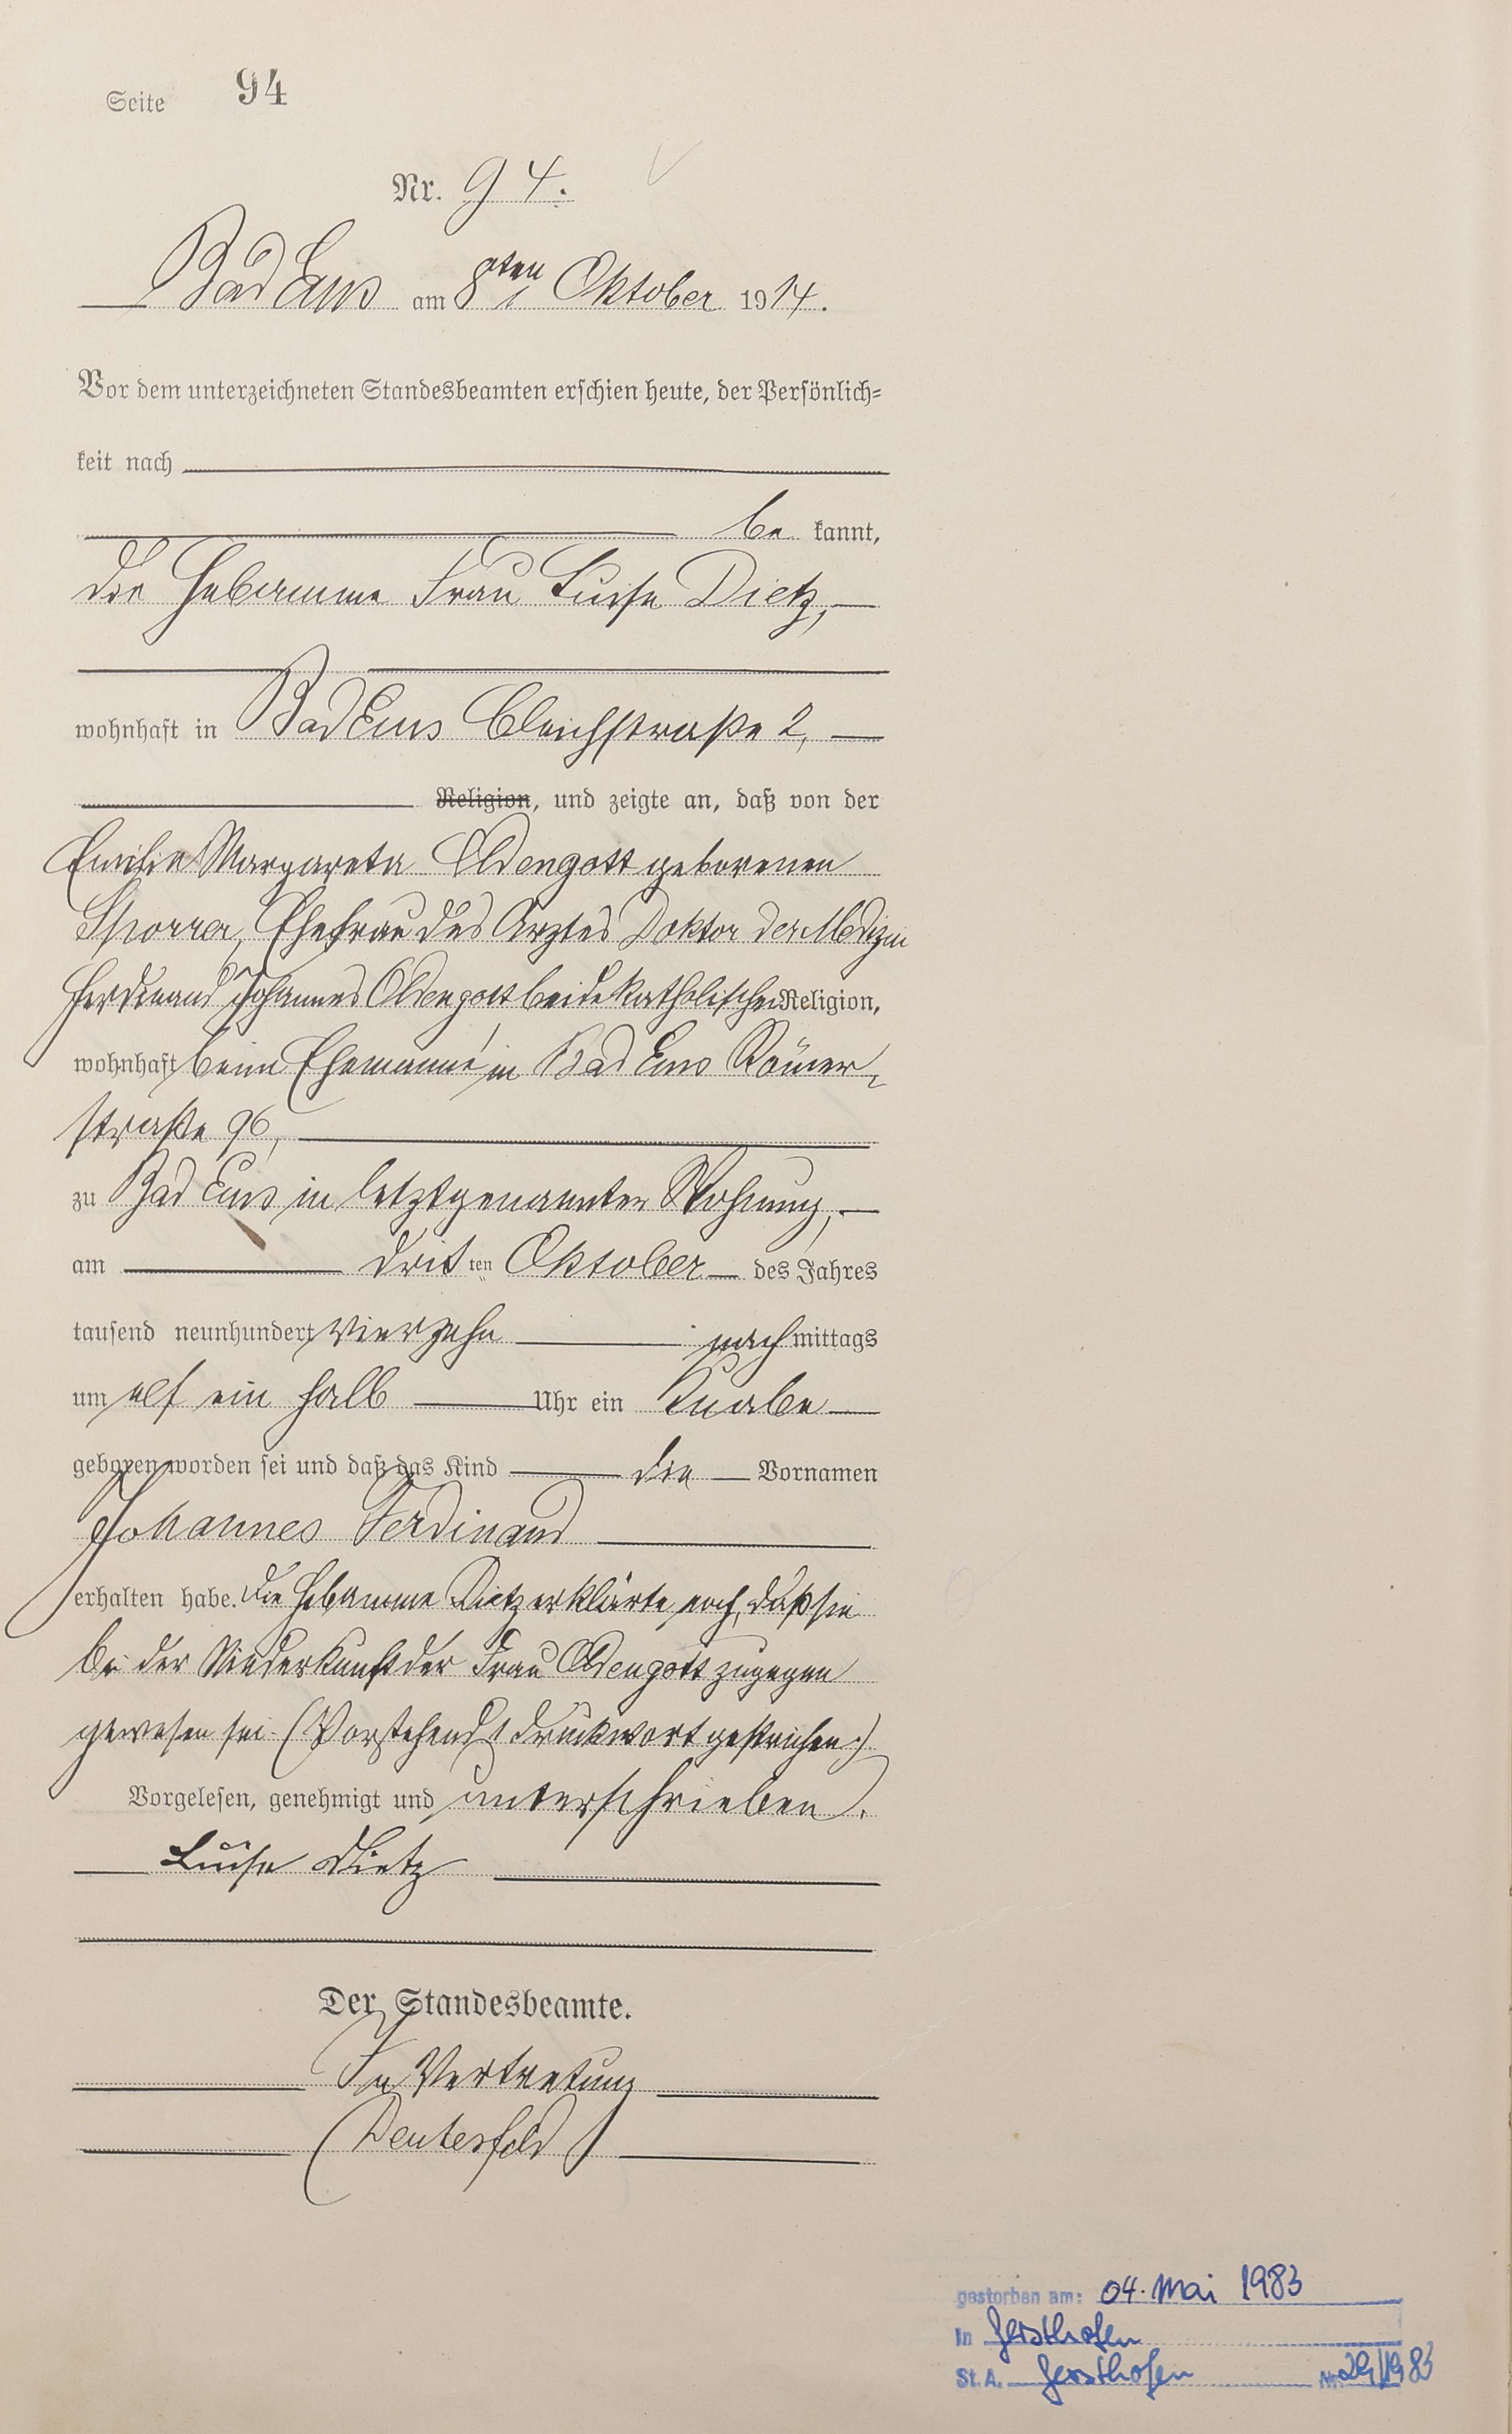 Seite 94
Nr. 94.
Bad Ems am 8ten Oktober 1914.
Vor dem unterzeichneten Standesbeamten erschien heute, der Persönlich=
keit nach
be kannt,
die Hebamme Frau Luise Dietz,
wohnhaft in Bad Ems Bleichstraße 2,
Religion, und zeigte an, daß von der
Emilie Margareta Oldengott geborenen
Sporrer, Ehefrau des Arztes Doktor der Medizin
Ferdinand Johannes Oldengott beide katholischer Religion,
wohnhaft beim Ehemanne in Bad Ems Römer-
straße 96,
zu Bad Ems in letztgenannter Wohnung,
am dritten Oktober des Jahres
tausend neunhundert vierzehn nachmittags
um elf ein halb Uhr ein Knabe
geboren worden sei und daß das Kind die Vornamen
Johannes Ferdinand
erhalten habe. Die Hebamme Dietz erklärte noch, daß sie
bei der Niederkunft der Frau Oldengott zugegen
gewesen sei. (Vorstehend 1 Druckwort gestrichen.)
Vorgelesen, genehmigt und unterschrieben.
Luise Dietz
Der Standesbeamte.
In Vertretung
gestorben am: 04. Mai 1983
in Gersthofen
St. A. Gersthofen Nr. 29/1983